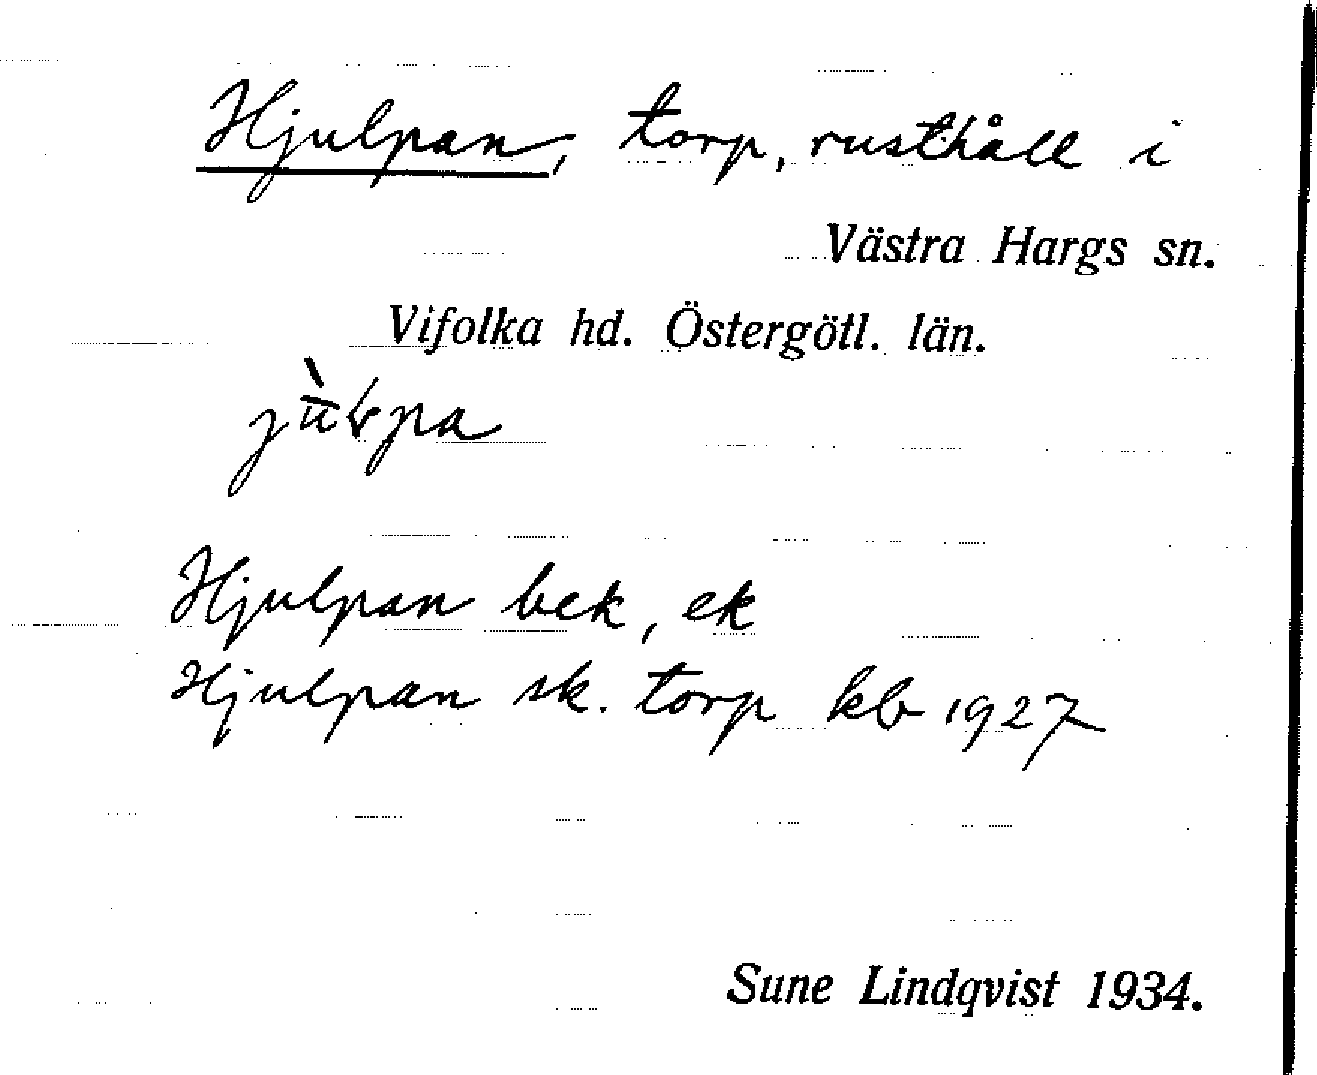 Hjulpan, torp, rusthåll i
Västra Hargs sn.
Vifolka hd. Östergötl. län.
Hjulpan bek, ek
Hjulpan sk. torp kb 1927
Sune Lindqvist 1934.